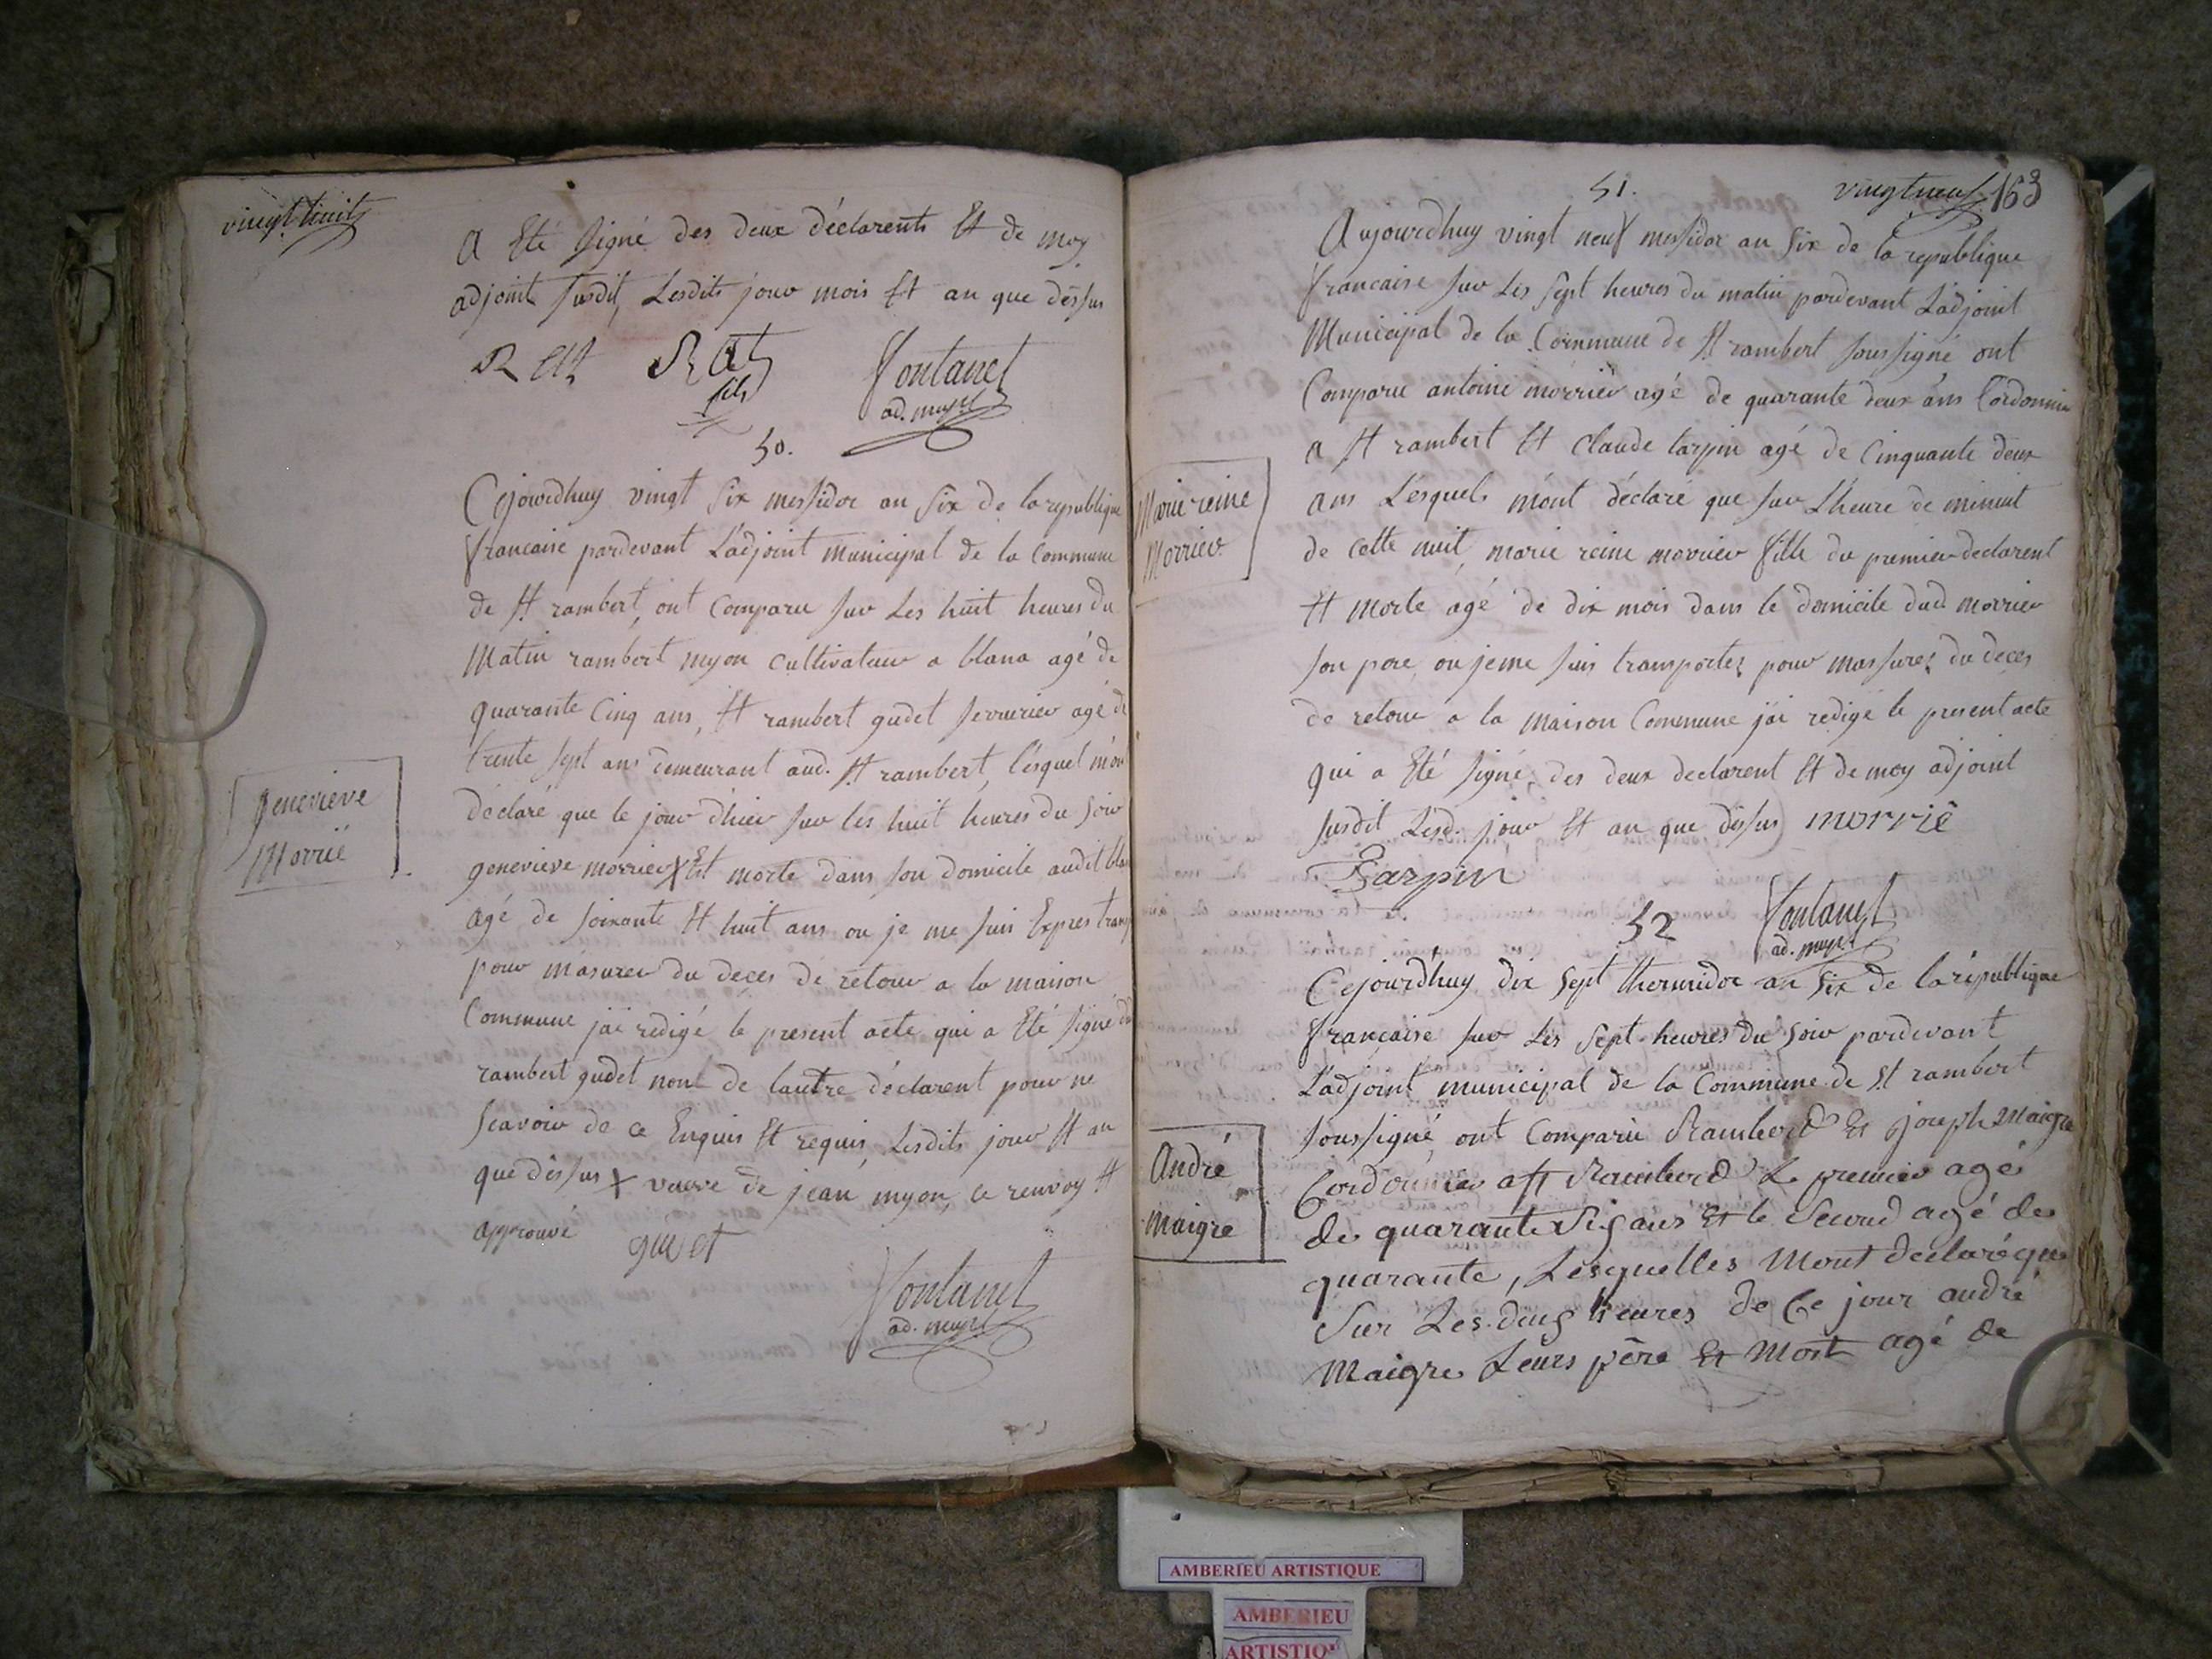 vingt huit
a Eté signé des deux déclarents Et de moy
adjoint susdit, Lesdits jour mois Et an que dessus
Rat Rat fils
fontanel
ad. mupl
50.
Cejourdhuy vingt six messidor an six de la republique
francaise pardevant L'adjoint municipal de la Commune
de St rambert, ont comparu sur Les huit heures du
matin rambert myon cultivateur a blana agé de
quarante cinq ans, Et rambert gudet serrurier agé de
trente sept ans demeurant aud. St rambert, lesquel m'on
déclaré que le jour d'hier sur les huit heures du soir
genevieve
Morrié
genevieve morrier X Est morte dans son domicile audit bla
agé de soixante Et huit ans ou je me suis Expres transp
pour m'asurer du deces de retour a la maison
Commune j'ai redigé le present acte qui a Eté signé du
rambert gudet nont de lautre déclarent pour ne
scavoir de ce Enquis Et requis, Lesdits jour Et an
que dessus X veuve de jean myon, ce renvoy Et
approuvé
gudet
fontanel
ad. mupl
51.
vingt neuf 163
Aujourdhuy vingt neuf messidor an six de la republique
francaise sur Les sept heures du matin pardevant L'adjoint
Municipal de la Commune de St rambert soussigné ont
Comparu antoine morrier agé de quarante deux ans Cordonnier
a St rambert Et Claude tarpin agé de Cinquante deux
Marie reine
Morrier
ans Lesquels m'ont déclaré que sur L'heure de minuit
de cette nuit, marie reine morrier fille du premier declarent
Et morte agé de dix mois dans le domicile dud morrier
son pere, ou je me suis transportez pour massurez du deces
de retour a la maison Commune j'ai redigé le present acte
qui a Eté signé, des deux declarent Et de moy adjoint
susdit Lesd. jour Et an que dessus morrié
Tarpin
fontanel
ad. mupl
52
Cejourdhuy dix sept thermidor an six de la republique
française sur Les sept heures du soir pardevant
L'adjoint municipal de la Commune de St rambert
soussigné, ont Comparu Rambert Et joseph Maigre
André
maigre
Cordonnier a St Rambert Le premier agé
de quarante six ans Et le Second agé de
quarante, Lesquelles Mont declaré que
Sur Les deux heures de Ce jour andré
Maigre Leurs père Et Mort agé de
AMBERIEU ARTISTIQUE
AMBERIEU
ARTISTIQU